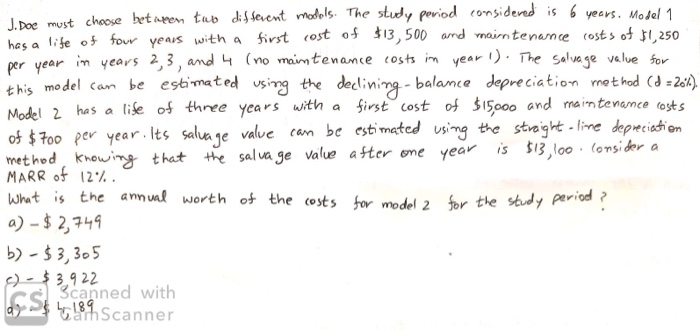 J.Doe must choose between two different models. The study period considered is 6 years. Model 1
has a life of four years with a first cost of $13,500 and maintenance costs of $1,250
per year in years 2,3, and 4 (no maintenance costs in year 1). The salvage value for
this model can be estimated using the declining-balance depreciation method (d=20%).
Model 2 has a life of three years with a first cost of $15000 and maintenance costs
of $700 per year. Its salvage value can be estimated using the straight-line depreciation
method knowing that the salvage value after one year is $13,100. Consider a
MARR of 12%.
What is the annual worth of the costs for model 2 for the study period?
a) -$2,749
b) -$3,305
c) -$3,922
d) -$4,189
CS Scanned with
CamScanner